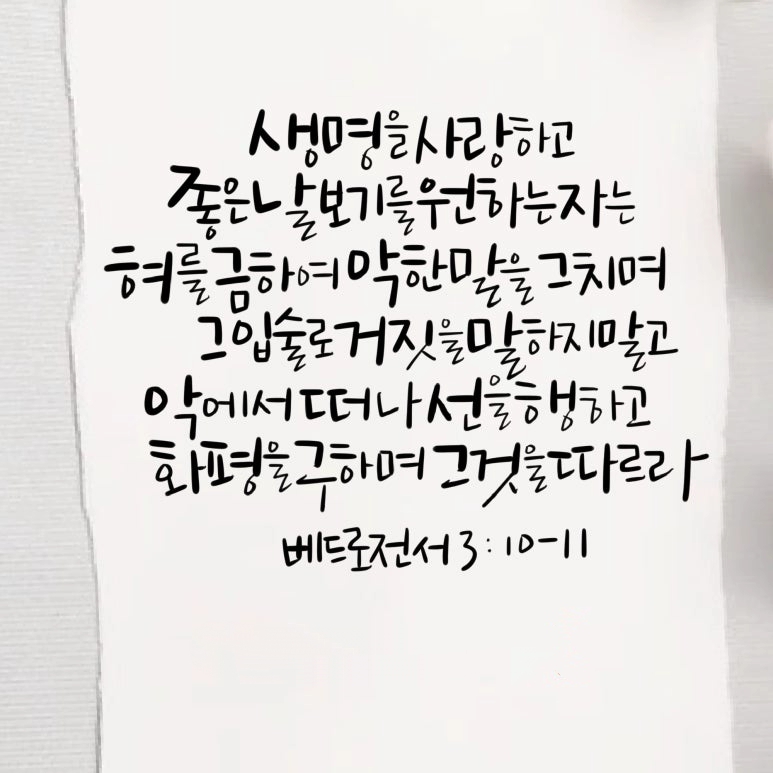 생명을 사랑하고
좋은 날 보기를 원하는 자는
혀를 금하여 악한 말을 그치며
그 입술로 거짓을 말하지 말고
악에서 떠나 선을 행하고
화평을 구하며 그것을 따르라
베드로전서 3:10-11